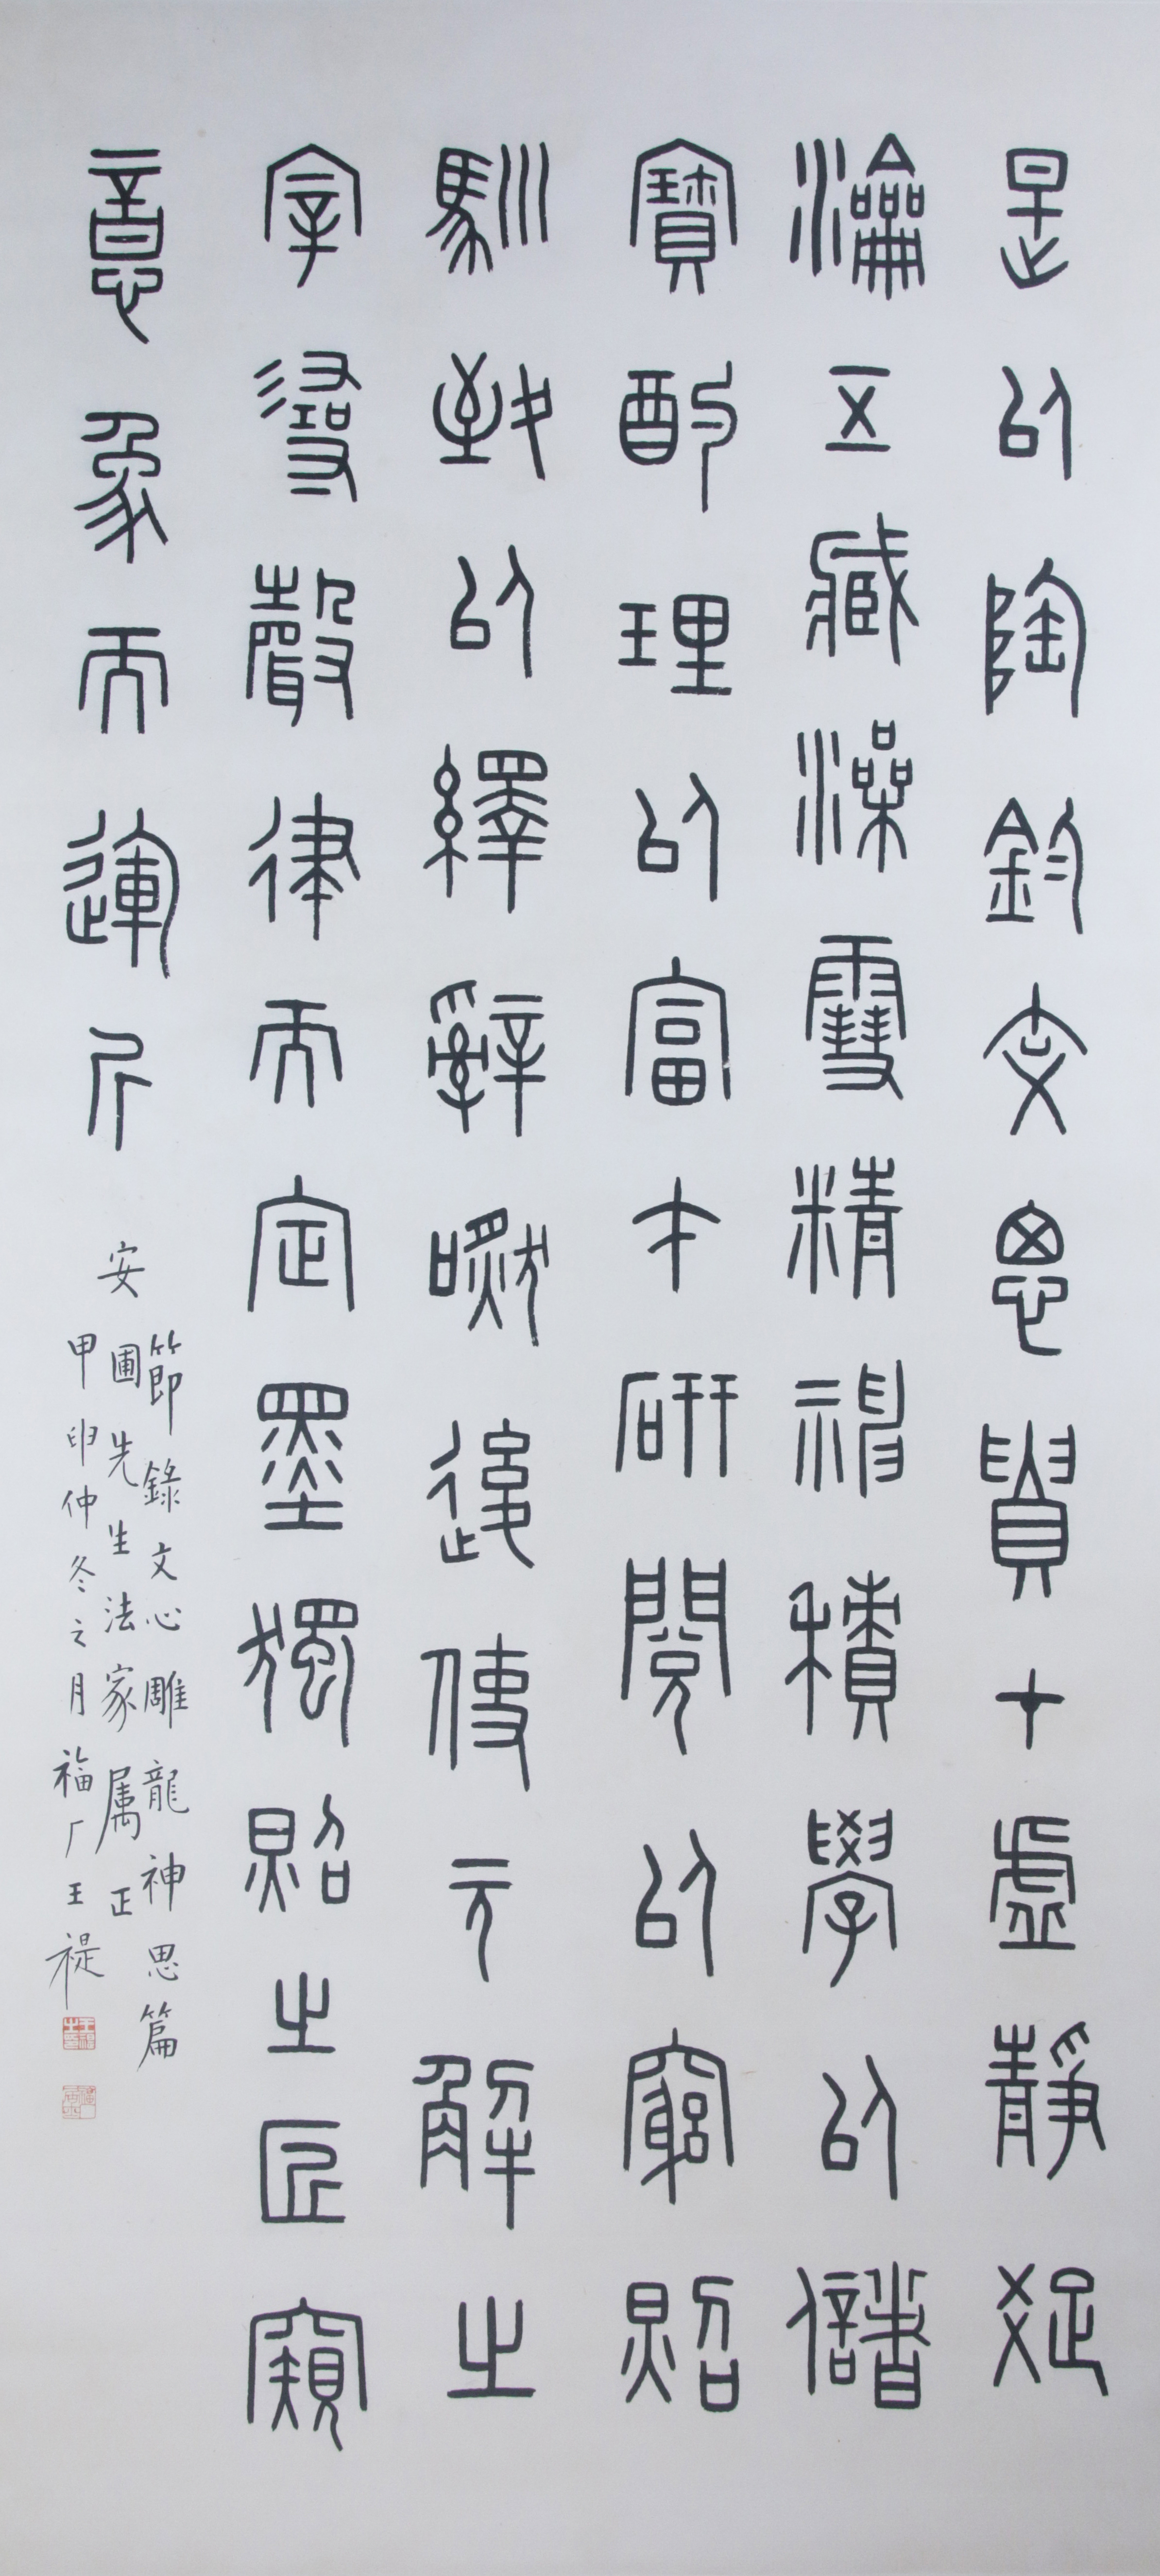 是以陶鈞文思貴十虛靜疏
瀹五臧澡雪精神積學以儲
寶酌理以富才研閱以窮照
馴致以繹辭然後使元解之
宰尋聲律而定墨獨照之匠窺
意象而運斤
節錄文心雕龍神思篇
安圃先生法家属正
甲申仲冬之月福厂王禔